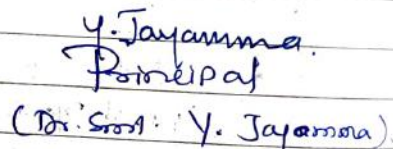 Y. Jayamma.
Principal
(Dr. Smt. Y. Jayamma)